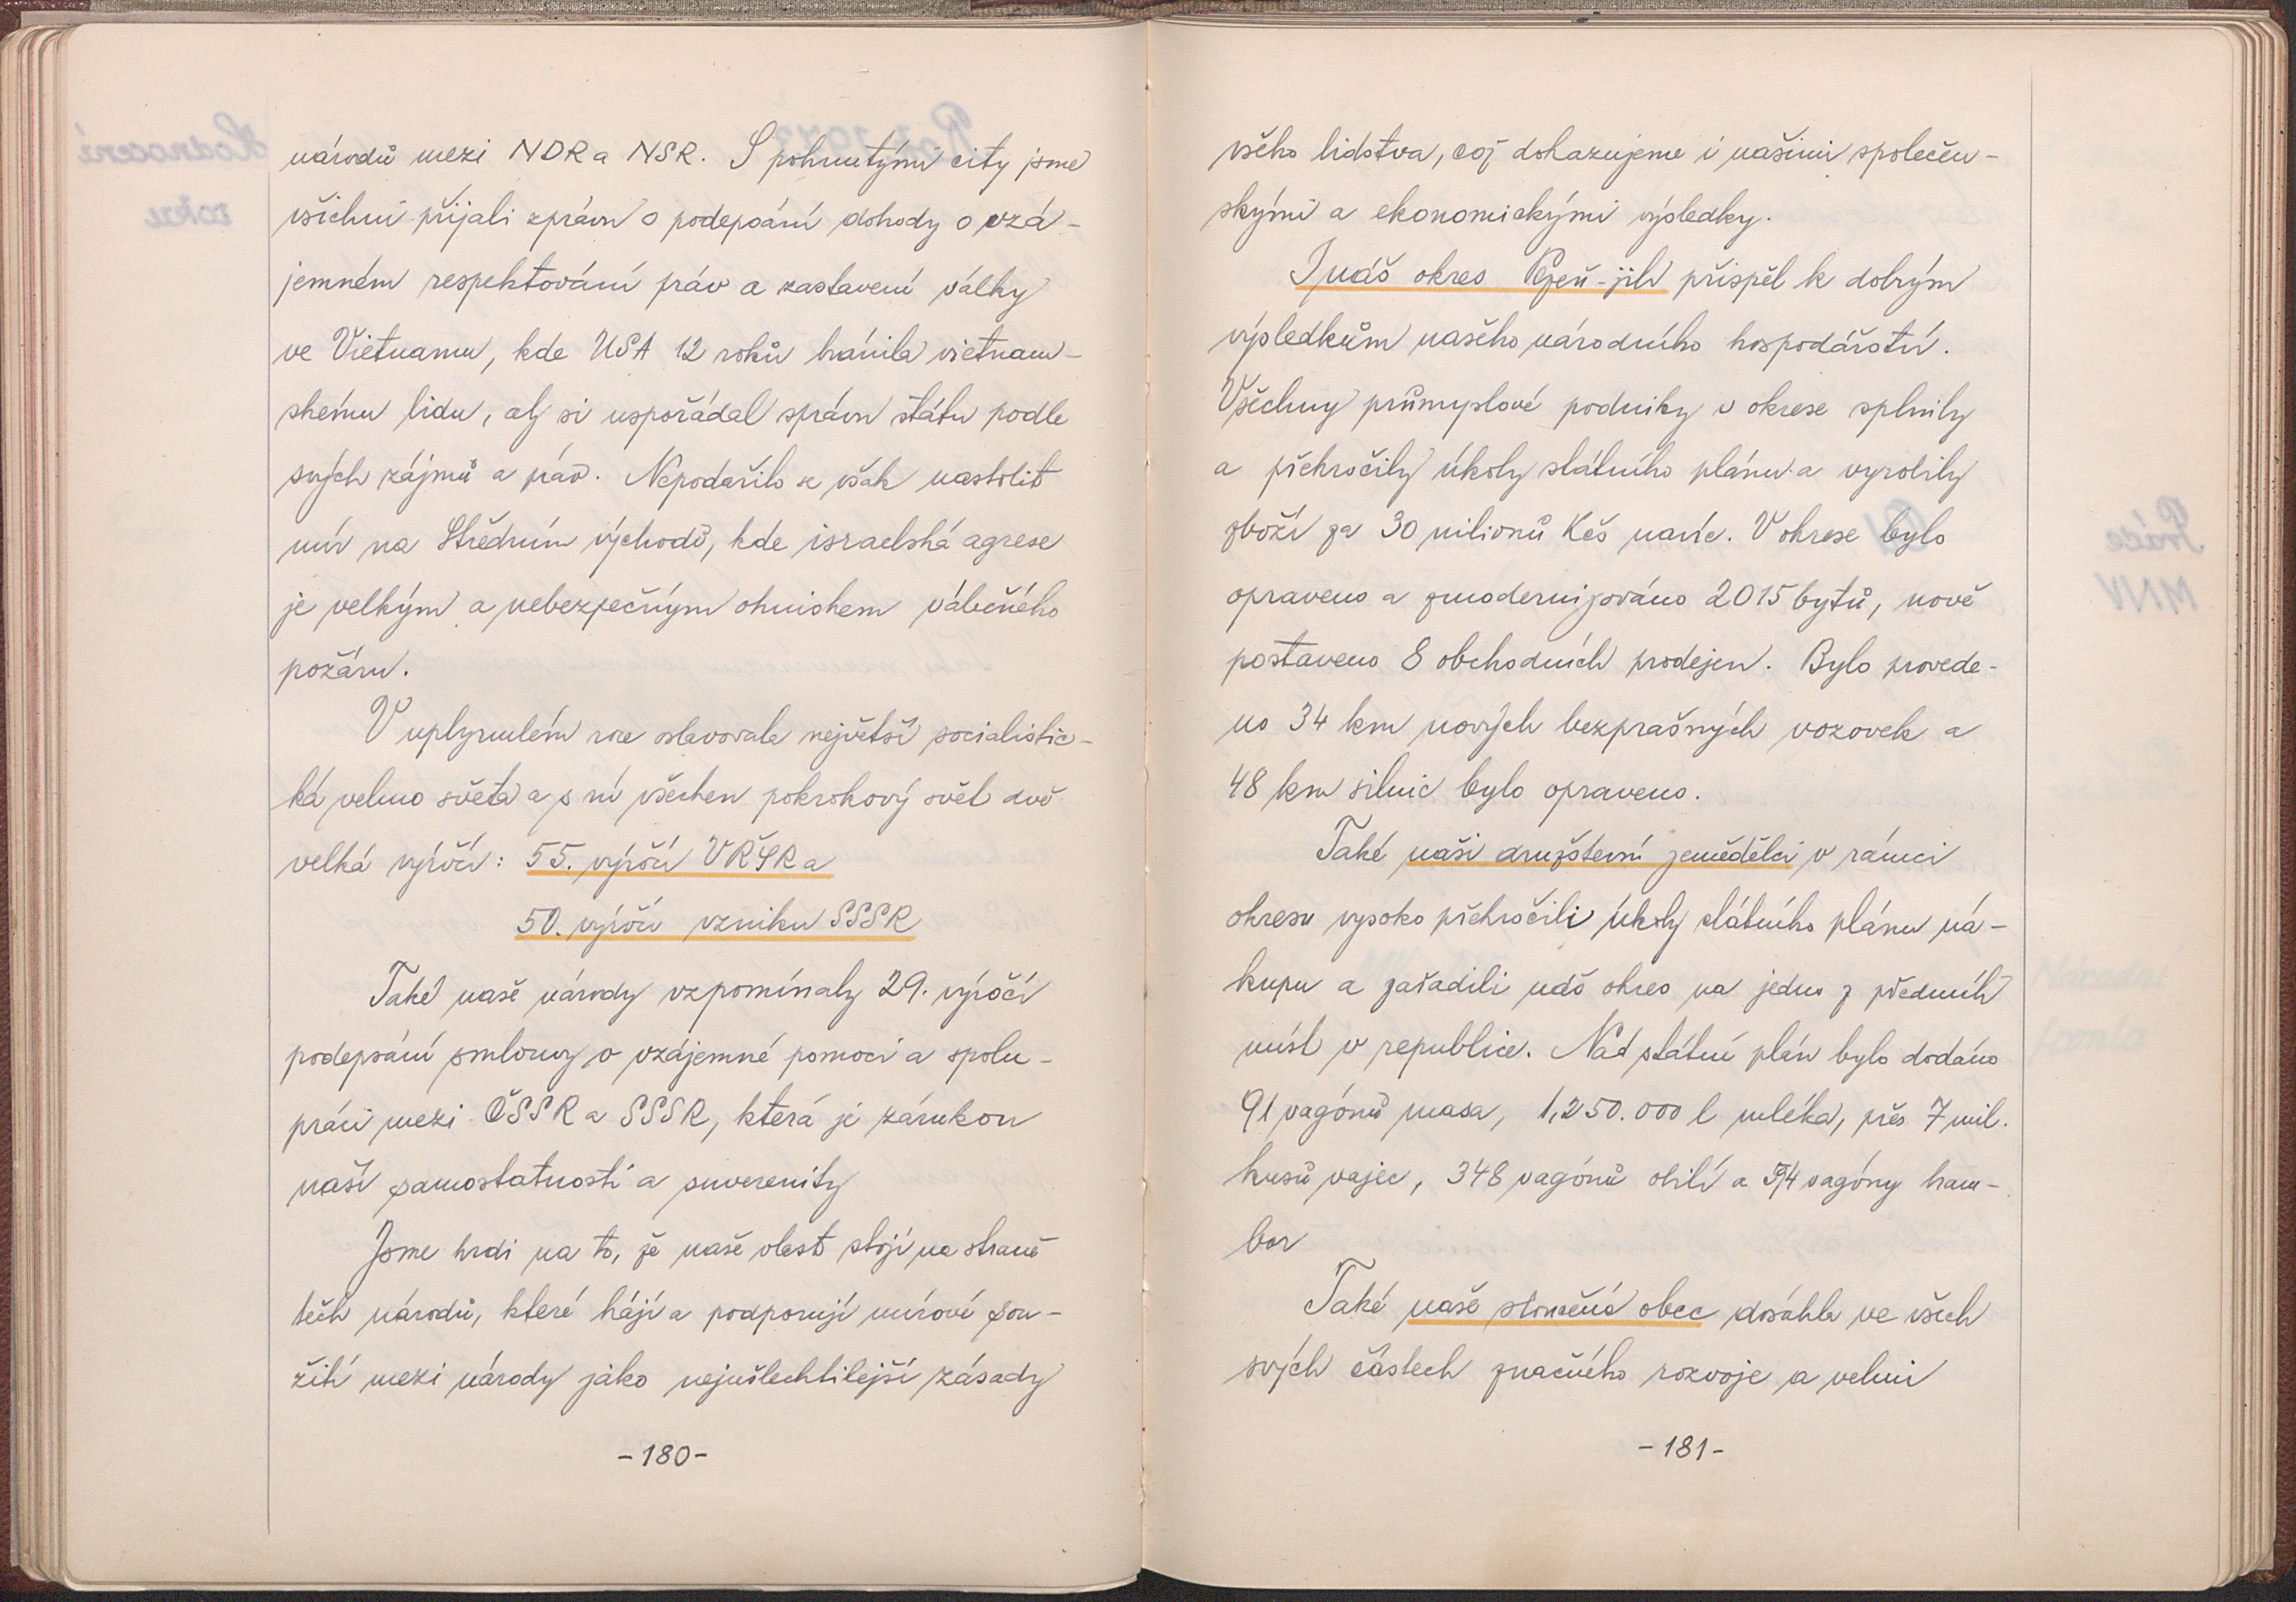 národů mezi NDR a NSR. S pohnutými city jsme
všichni přijali zprávu o podepsání dohody o vzá-
jemném respektování práv a zastavení války
ve Vietnamu, kde USA 12 roků bránila vietnam-
skému lidu, aby si uspořádal správu státu podle
svých zájmů a práv. Nepodařilo se však nastolit
mír na Středním východě, kde israelská agrese
je velkým a nebezpečným ohniskem válečného
požáru.
V uplynulém roce oslavovala největší socialistic-
ká velmoc světa a s ní všechen pokrokový svět dvě
velká výročí: 55. výročí VŘSR a
50. výročí vzniku SSSR
Také naše národy vzpomínaly 29. výročí
podepsání smlouvy o vzájemné pomoci a spolu-
práci mezi ČSSR a SSSR, která je zárukou
naší samostatnosti a suverenity
Jsme hrdi na to, že naše vlast stojí na straně
těch národů, které hájí a podporují mírové sou-
žití mezi národy jako nejušlechtilejší zásady
-180-
všeho lidstva, což dokazujeme i našimi společen-
skými a ekonomickými výsledky.
I náš okres Plzeň-jih přispěl k dobrým
výsledkům našeho národního hospodářství.
Všechny průmyslové podniky v okrese splnily
a překročily úkoly státního plánu a vyrobily
zboží za 30 milionů Kčs navíc. V okrese bylo
opraveno a zmodernizováno 2015 bytů, nově
postaveno 8 obchodních prodejen. Bylo provede-
no 34 km nových bezprašných vozovek a
48 km silnic bylo opraveno.
Také naši družstevní zemědělci v rámci
okresu vysoko překročili úkoly státního plánu ná-
kupu a zařadili náš okres na jedno z předních
míst v republice. Nad státní plán bylo dodáno
91 vagónů masa, 1,250.000 l mléka, přes 7 mil.
kusů vajec, 348 vagónů obilí a vagóny bram-
bor
Také naše sloučená obec dosáhla ve všech
svých částech značného rozvoje a velmi
-181-